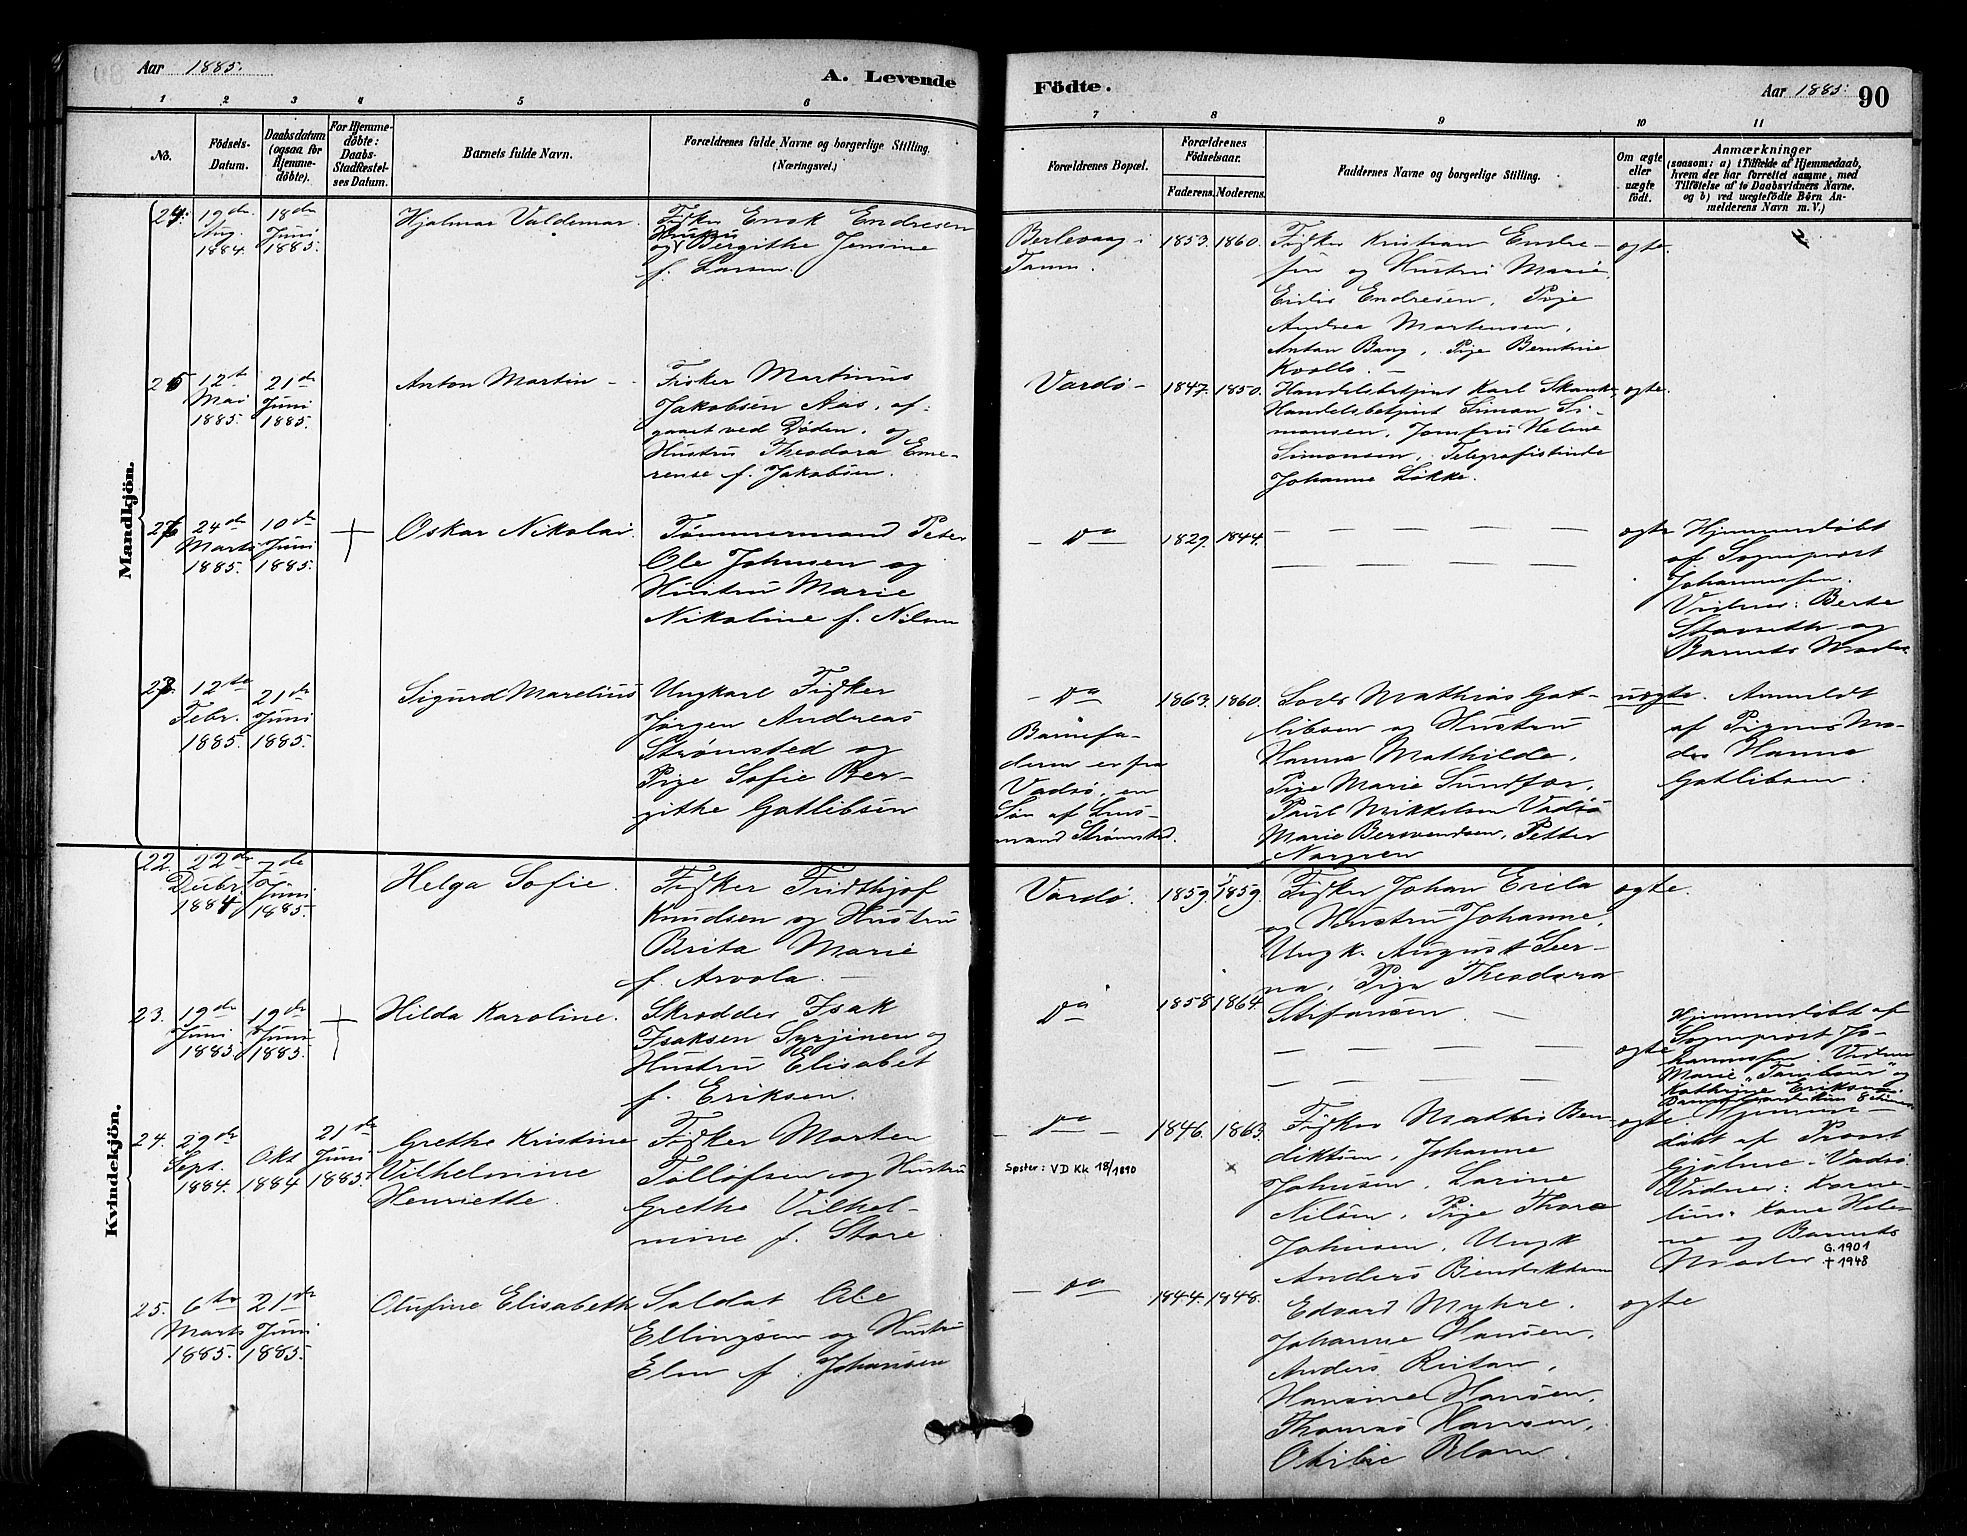 Aar 1885.
A. Levende
Födte.
Aar 1885.
90
1 2 3 4 5 6 7 8 9 10 11
No.
Födsels-
Datum.
Daabsdatum
(ogsaa for
Hjemme-
döbte).
For Hjemme-
döbte:
Daabs-
Stadfæstel-
ses Datum.
Barnets fulde Navn.
Forældrenes fulde Navne og borgerlige Stilling.
(Næringsvei.)
Forældrenes Bopæl.
Forældrenes
Födselsaar.
Faderens. Moderens.
Faddernes Navne og borgerlige Stilling.
Om ægte
eller
uægte
födt.
Anmærkninger
(saasom: a) i Tilfælde af Hjemmedaab,
hvem der har forrettet samme, med
Tilföielse af to Daabsvidners Navne.
og b) ved uægtefödte Börn An-
melderens Navn m. V.)
Mandkjön.
24.
19de
Aug.
1884.
18de
Juni
1885.
Hjalmar Valdemar.
Fisker Erik Endresen
og Hustru Bergithe Jensine
f. Larsen.
Berlevaag i
Tanen.
1853. 1860.
Fisker Kristian Endre-
sen og Hustru Marie,
Endresen, Pige
Andrea Mortensen,
Anton Bang, Pige Berntine
ægte.
25
12te
Mai
1885.
21de
Juni
1885.
Anton Martin
Fisker Martinus
Jakobsen Aas, af-
gaaet ved Døden, og
Hustru Theodora Eme-
rense f. Jakobsen.
Vardø
1847. 1850.
Handelsbetjent Karl Skanke,
Handelsbetjent Simon Si-
monsen, Jomfru Heline
Simonsen, Telegrafistinde
Johanne Løkke.
ægte.
26
24de
Marts
1885.
10de
Juni
1885.
Oskar Nikolai.
Tømmermand Peter
Ole Johnsen og
Hustru Marie
Nikoline f. Nilsen
— do
1829. 1844.
ægte
Hjemmedøbt
af Sogneprest
Johannessen.
Vidner: Berte
Stavseth og
Barnets Moder
27.
12te
Febr.
1885.
21de
Juni
1885.
Sigurd Marelius
Ungkarl Fisker
Jørgen Andreas
Strømsted og
Pige Sofie Ber-
githe Gotlibsen
— do
Barnefa-
deren er fra
Vadsø, en
Søn af Lens-
mand Strømsted.
1863. 1860.
Lods Mathias Got-
libsen og Hustru
Hanna Mathilde,
Pige Marie Sundfær,
Paul Mikkelsen Vadsø
Marie Bersvendsen, Petter
Norgren
uægte.
Anmeldt
af Pigens Mo-
der Hanna
Gotlibsen.
Kvindekjön.
22.
22de
Decbr.
1884
7de
Juni
1885.
Helga Sofie.
Fisker Fridthjof
Knudsen og Hustru
Brita Marie
f. Arvola.
Vardø.
1859. 1859.
Fisker Johan Erila
og Hustru Johanne,
Ungk. August Leer-
na, Pige Theodora
Stefansen.
ægte.
23.
19de
Juni
1885.
19de
Juni
1885.
Hilda Karoline.
Skrædder Isak
Isaksen Syrjenen og
Hustru Elisabet
f. Eriksen.
do
1858 1864.
ægte
Hjemmedøbt af
Sogneprest Jo-
hannessen. Vidner
Marie "Tambour" og
Kathrine Eriksen
24.
29de
Sept.
1884.
Okt
1884
21de
Juni
1885.
Grethe Kristine
Vilhelmine
Henriette.
Fisker Morten
Tollofsen og Hustru
Grethe Vilhel-
mine f. Store.
— do —
Søster: VD Kk 18/1890
1846. 1863.
Fisker Mathis Ben-
diktsen, Johanne
Johnsen, Larine
Nilsen, Pige Thora
Johnsen, Ungk
Anders Bendiktsen
ægte.
Hjemme-
døbt af Provst
Gjølme, Vadsø.
Vidner: Korne-
lius Kone Hele-
ne og Barnets
Moder
G. 1901
† 1948
25.
6te
Marts
1885.
21de
Juni
1885.
Olufine Elisabeth
Soldat Ole
Ellingsen og Hustru
Elen f. Johansen
— do
1844. 1848.
Edvard Myhre,
Johanne Hansen,
Anders Reitan,
Hansine Hansen,
Thomas Hansen,
Otilie Blom.
ægte